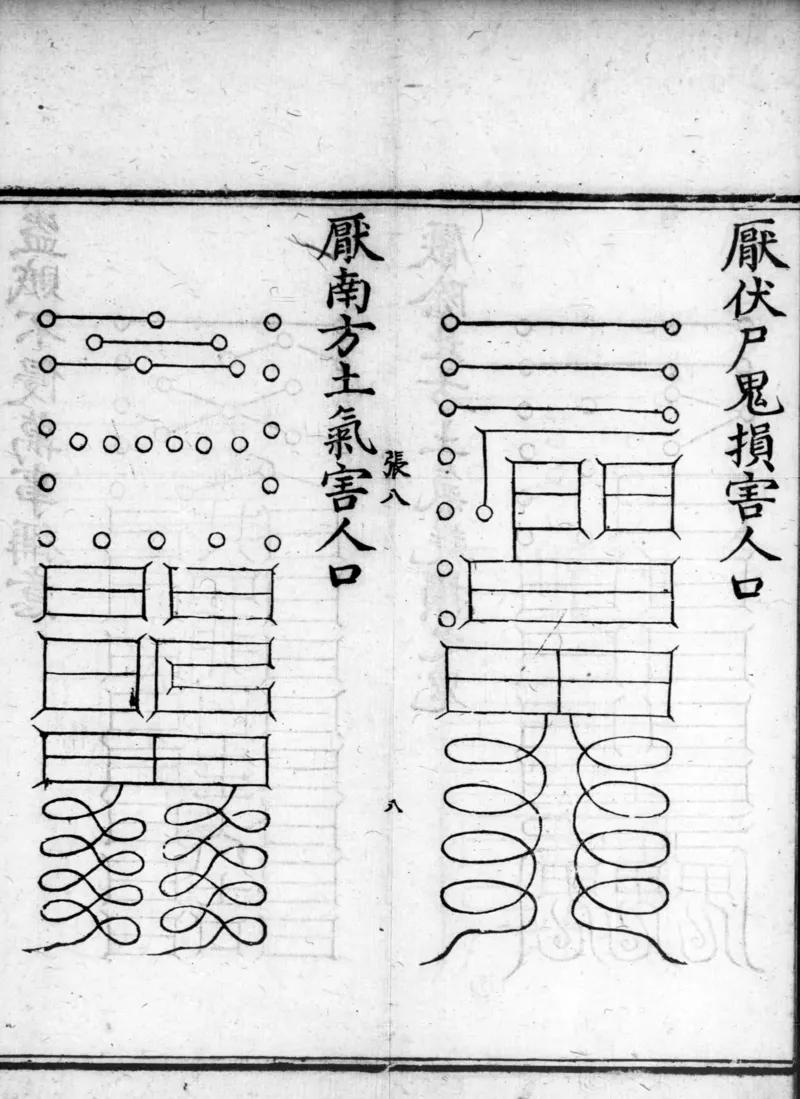 厭伏尸鬼損害人口
張八
八
厭南方土氣害人口